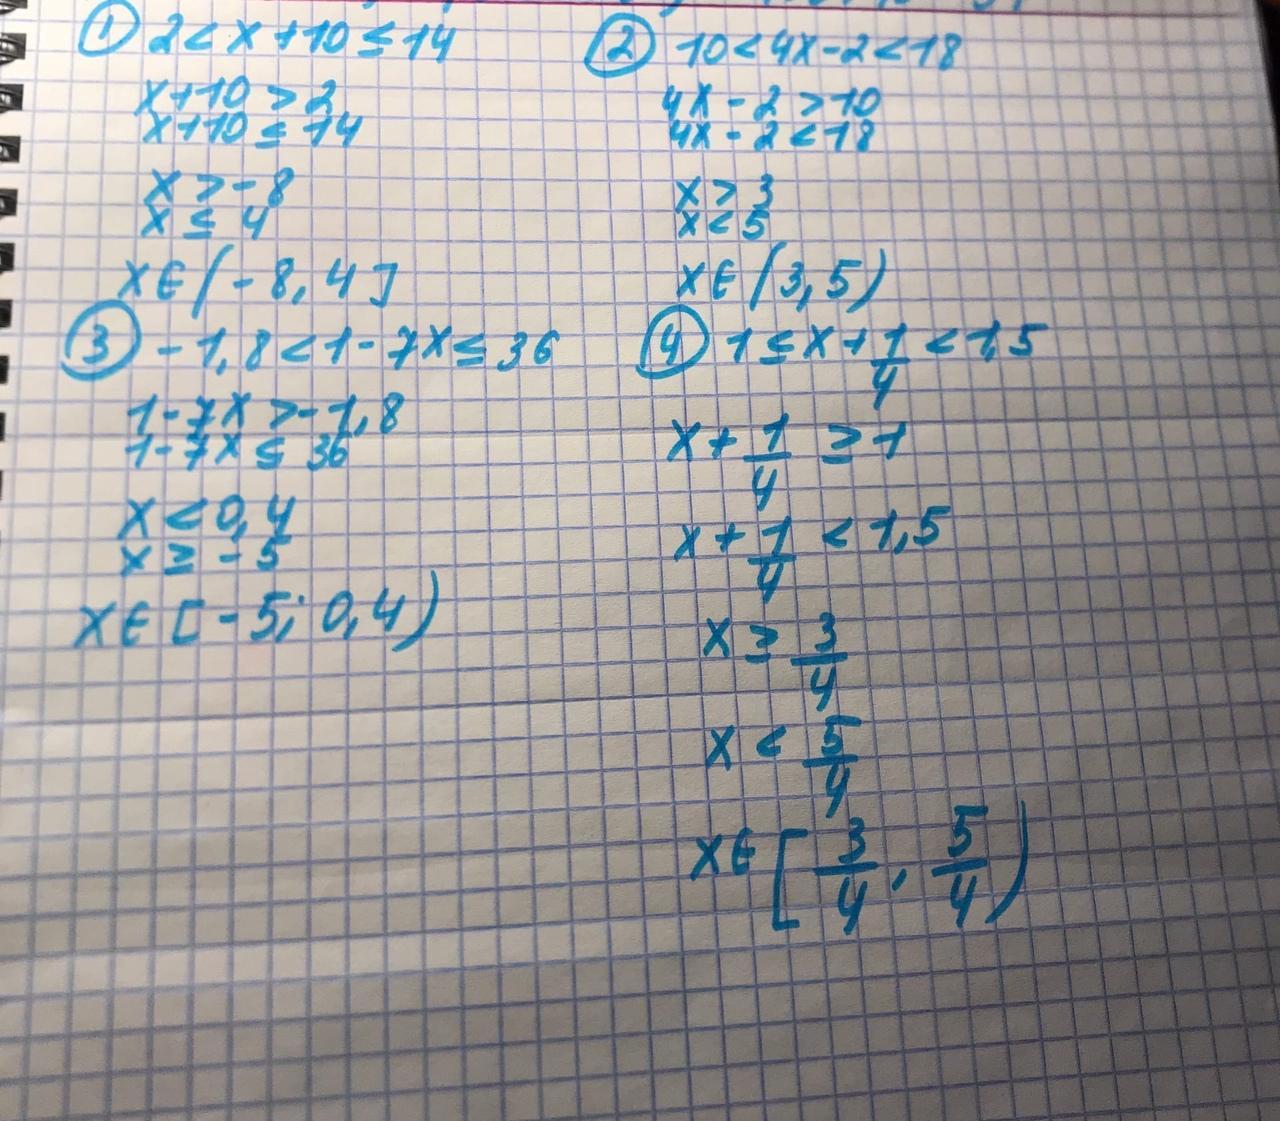 ① 2 < x + 10 ≤ 14
x + 10 > 2
x + 10 ≤ 14
x > -8
x ≤ 4
x ∈ (-8, 4]
② 10 < 4x - 2 < 18
4x - 2 > 10
4x - 2 < 18
x > 3
x < 5
x ∈ (3, 5)
③ -1,8 < 1 - 7x ≤ 36
1 - 7x > -1,8
1 - 7x ≤ 36
x < 0,4
x ≥ -5
x ∈ [-5; 0,4)
④ 1 ≤ x + 1/4 < 1,5
x + 1/4 ≥ 1
x + 1/4 < 1,5
x ≥ 3/4
x < 5/4
x ∈ [3/4, 5/4)